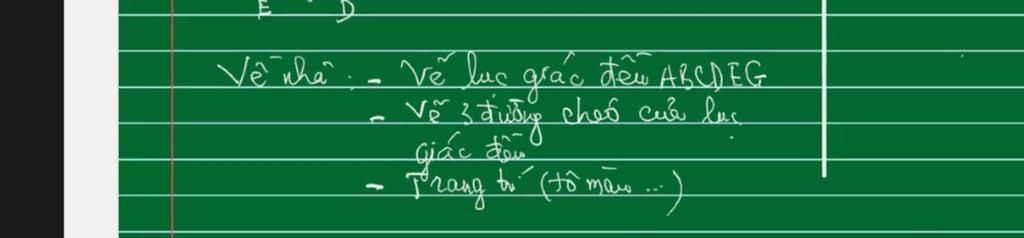 E D
Về nhà: - Vẽ lục giác đều ABCDEG
- Vẽ 3 đường chéo của lục
giác đều
- Trang trí (tô màu ...)